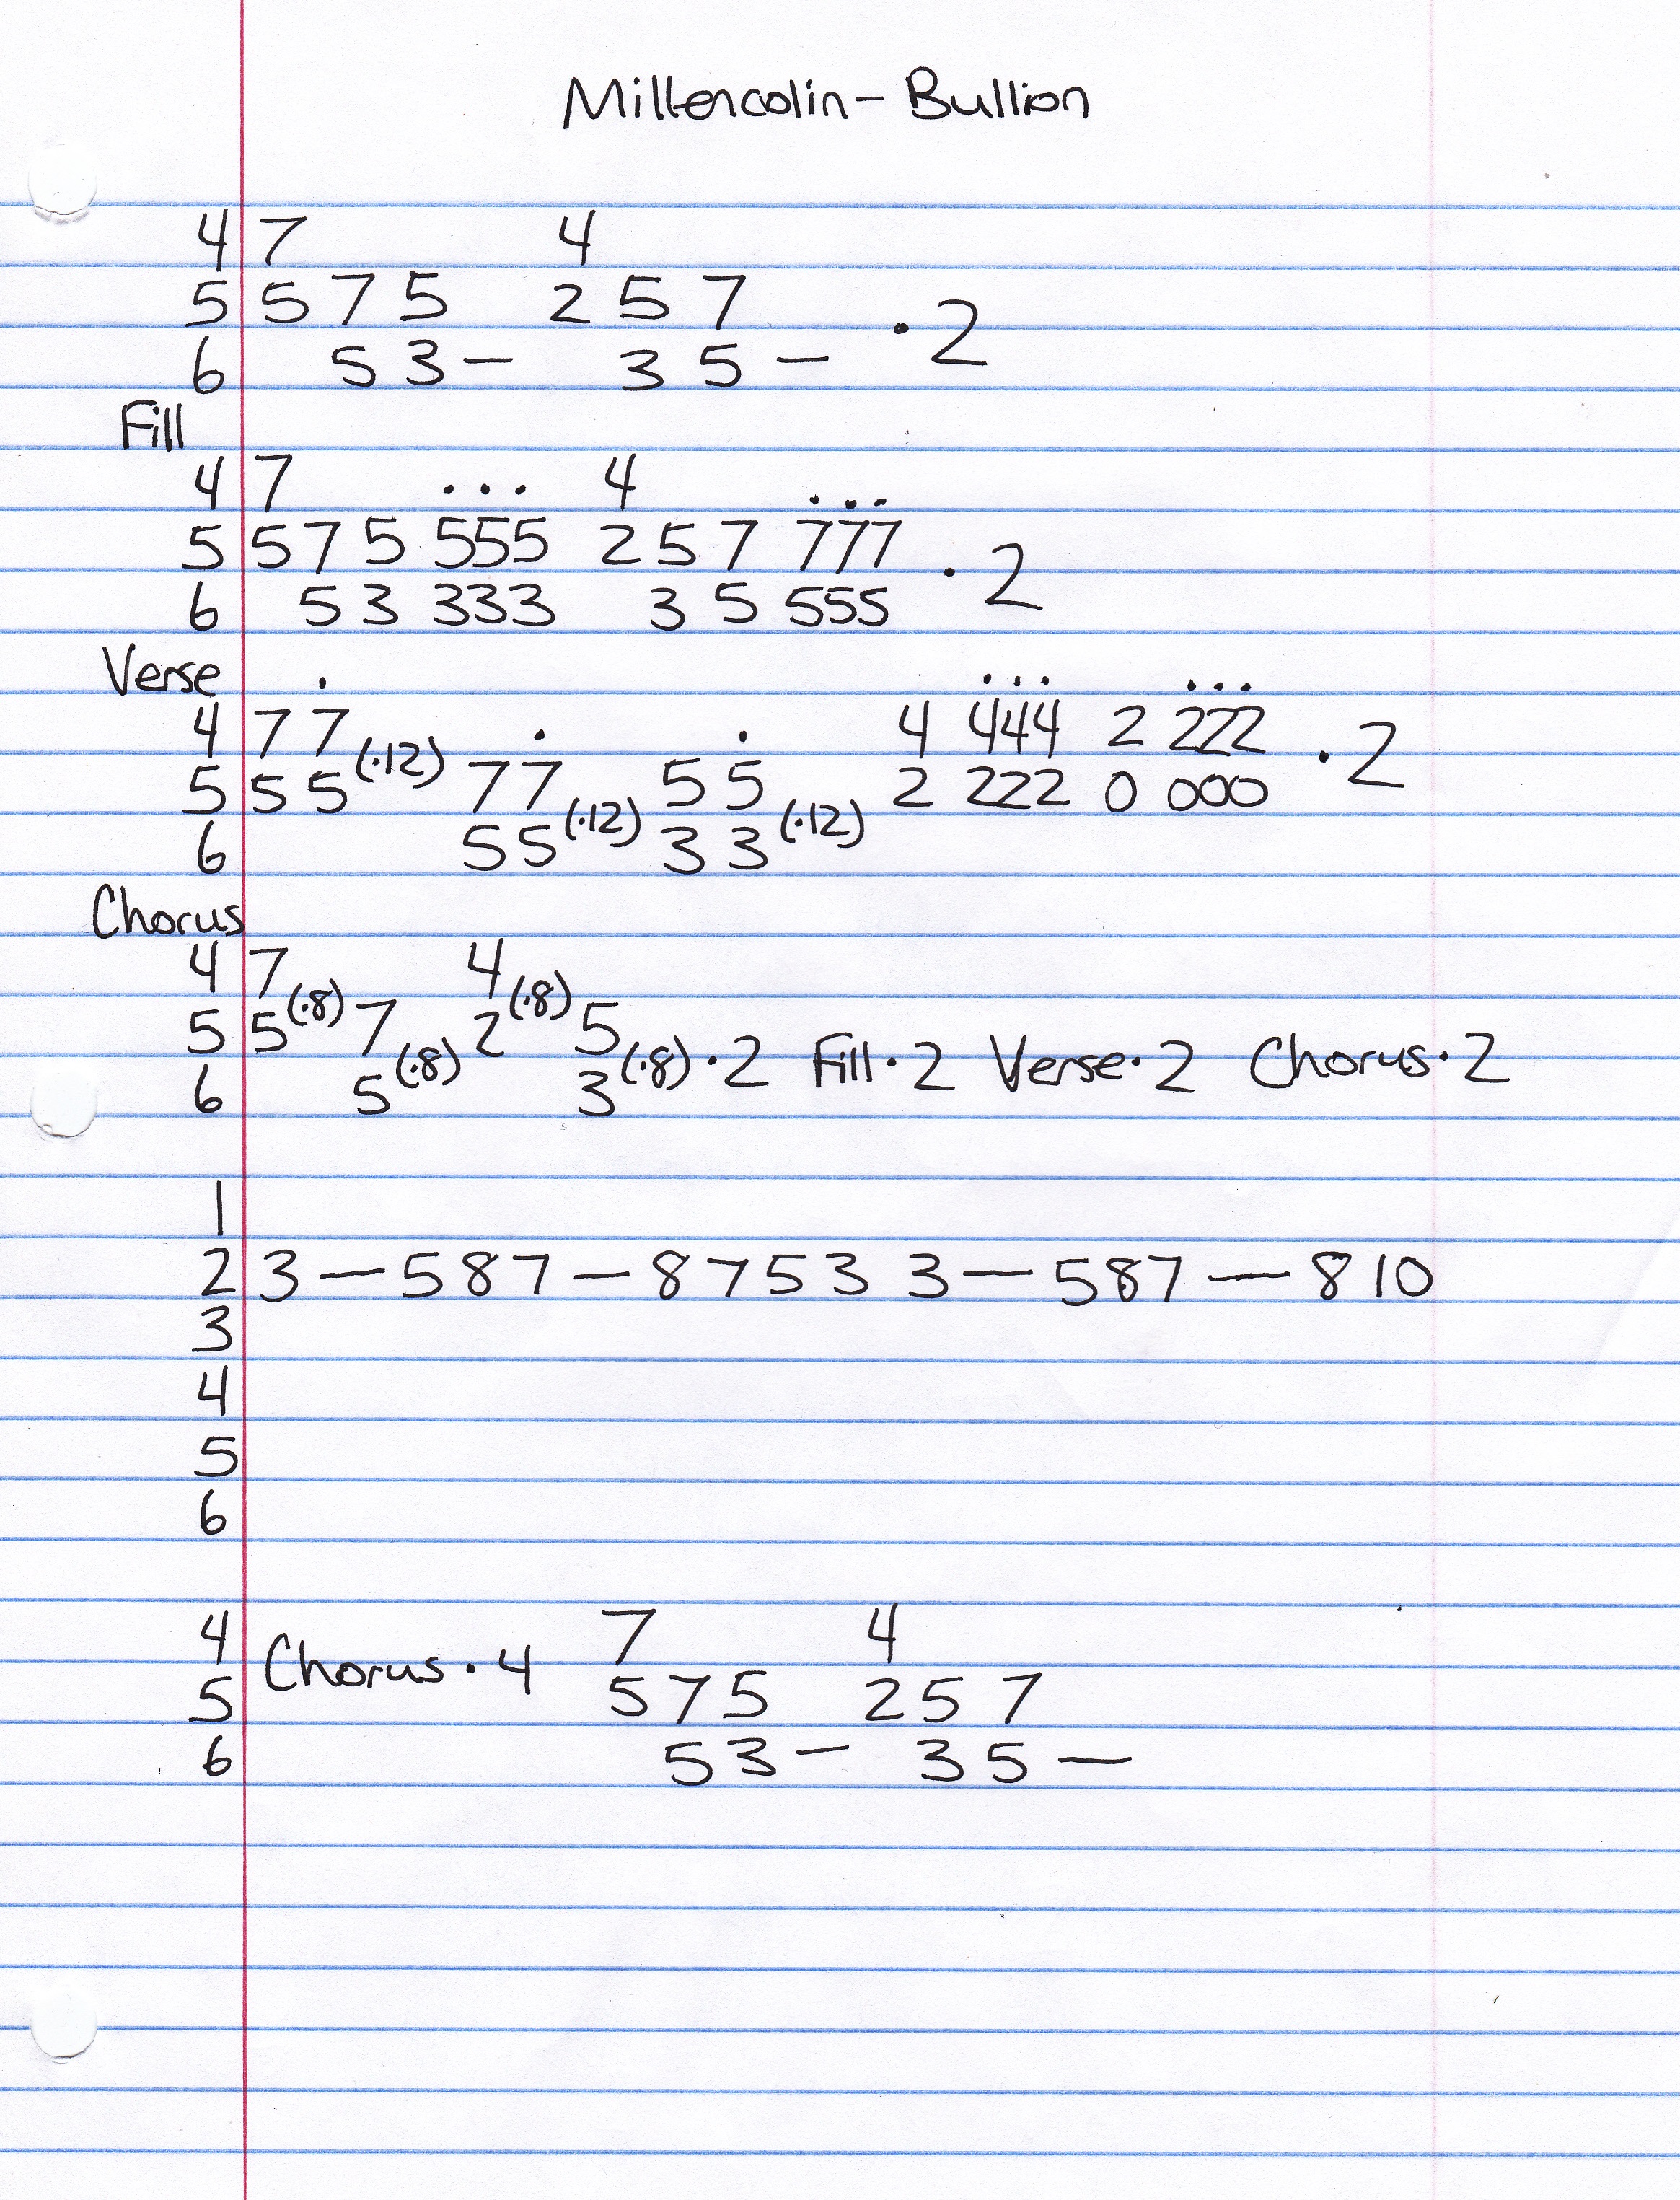 Millencolin - Bullion
4 7 4
5 5 7 5 2 5 7
6 5 3 — 3 5 — · 2
Fill
4 7 ... 4 ...
5 5 7 5 555 2 5 7 777
6 5 3 333 3 5 555 · 2
Verse .
4 7 7 (·12) . . 4 ... 444 2 ... 222 · 2
5 5 5 7 7 (·12) 5 5 (·12) 2 222 0 000
6 5 5 3 3
Chorus
4 7 4
5 5 (·8) 7 2 (·8) 5
6 5 (·8) 3 (·8) · 2 Fill · 2 Verse · 2 Chorus · 2
1
2 3 — 5 8 7 — 8 7 5 3 3 — 5 8 7 — 8 10
3
4
5
6
4 7 4
5 Chorus · 4 5 7 5 2 5 7
6 5 3 — 3 5 —